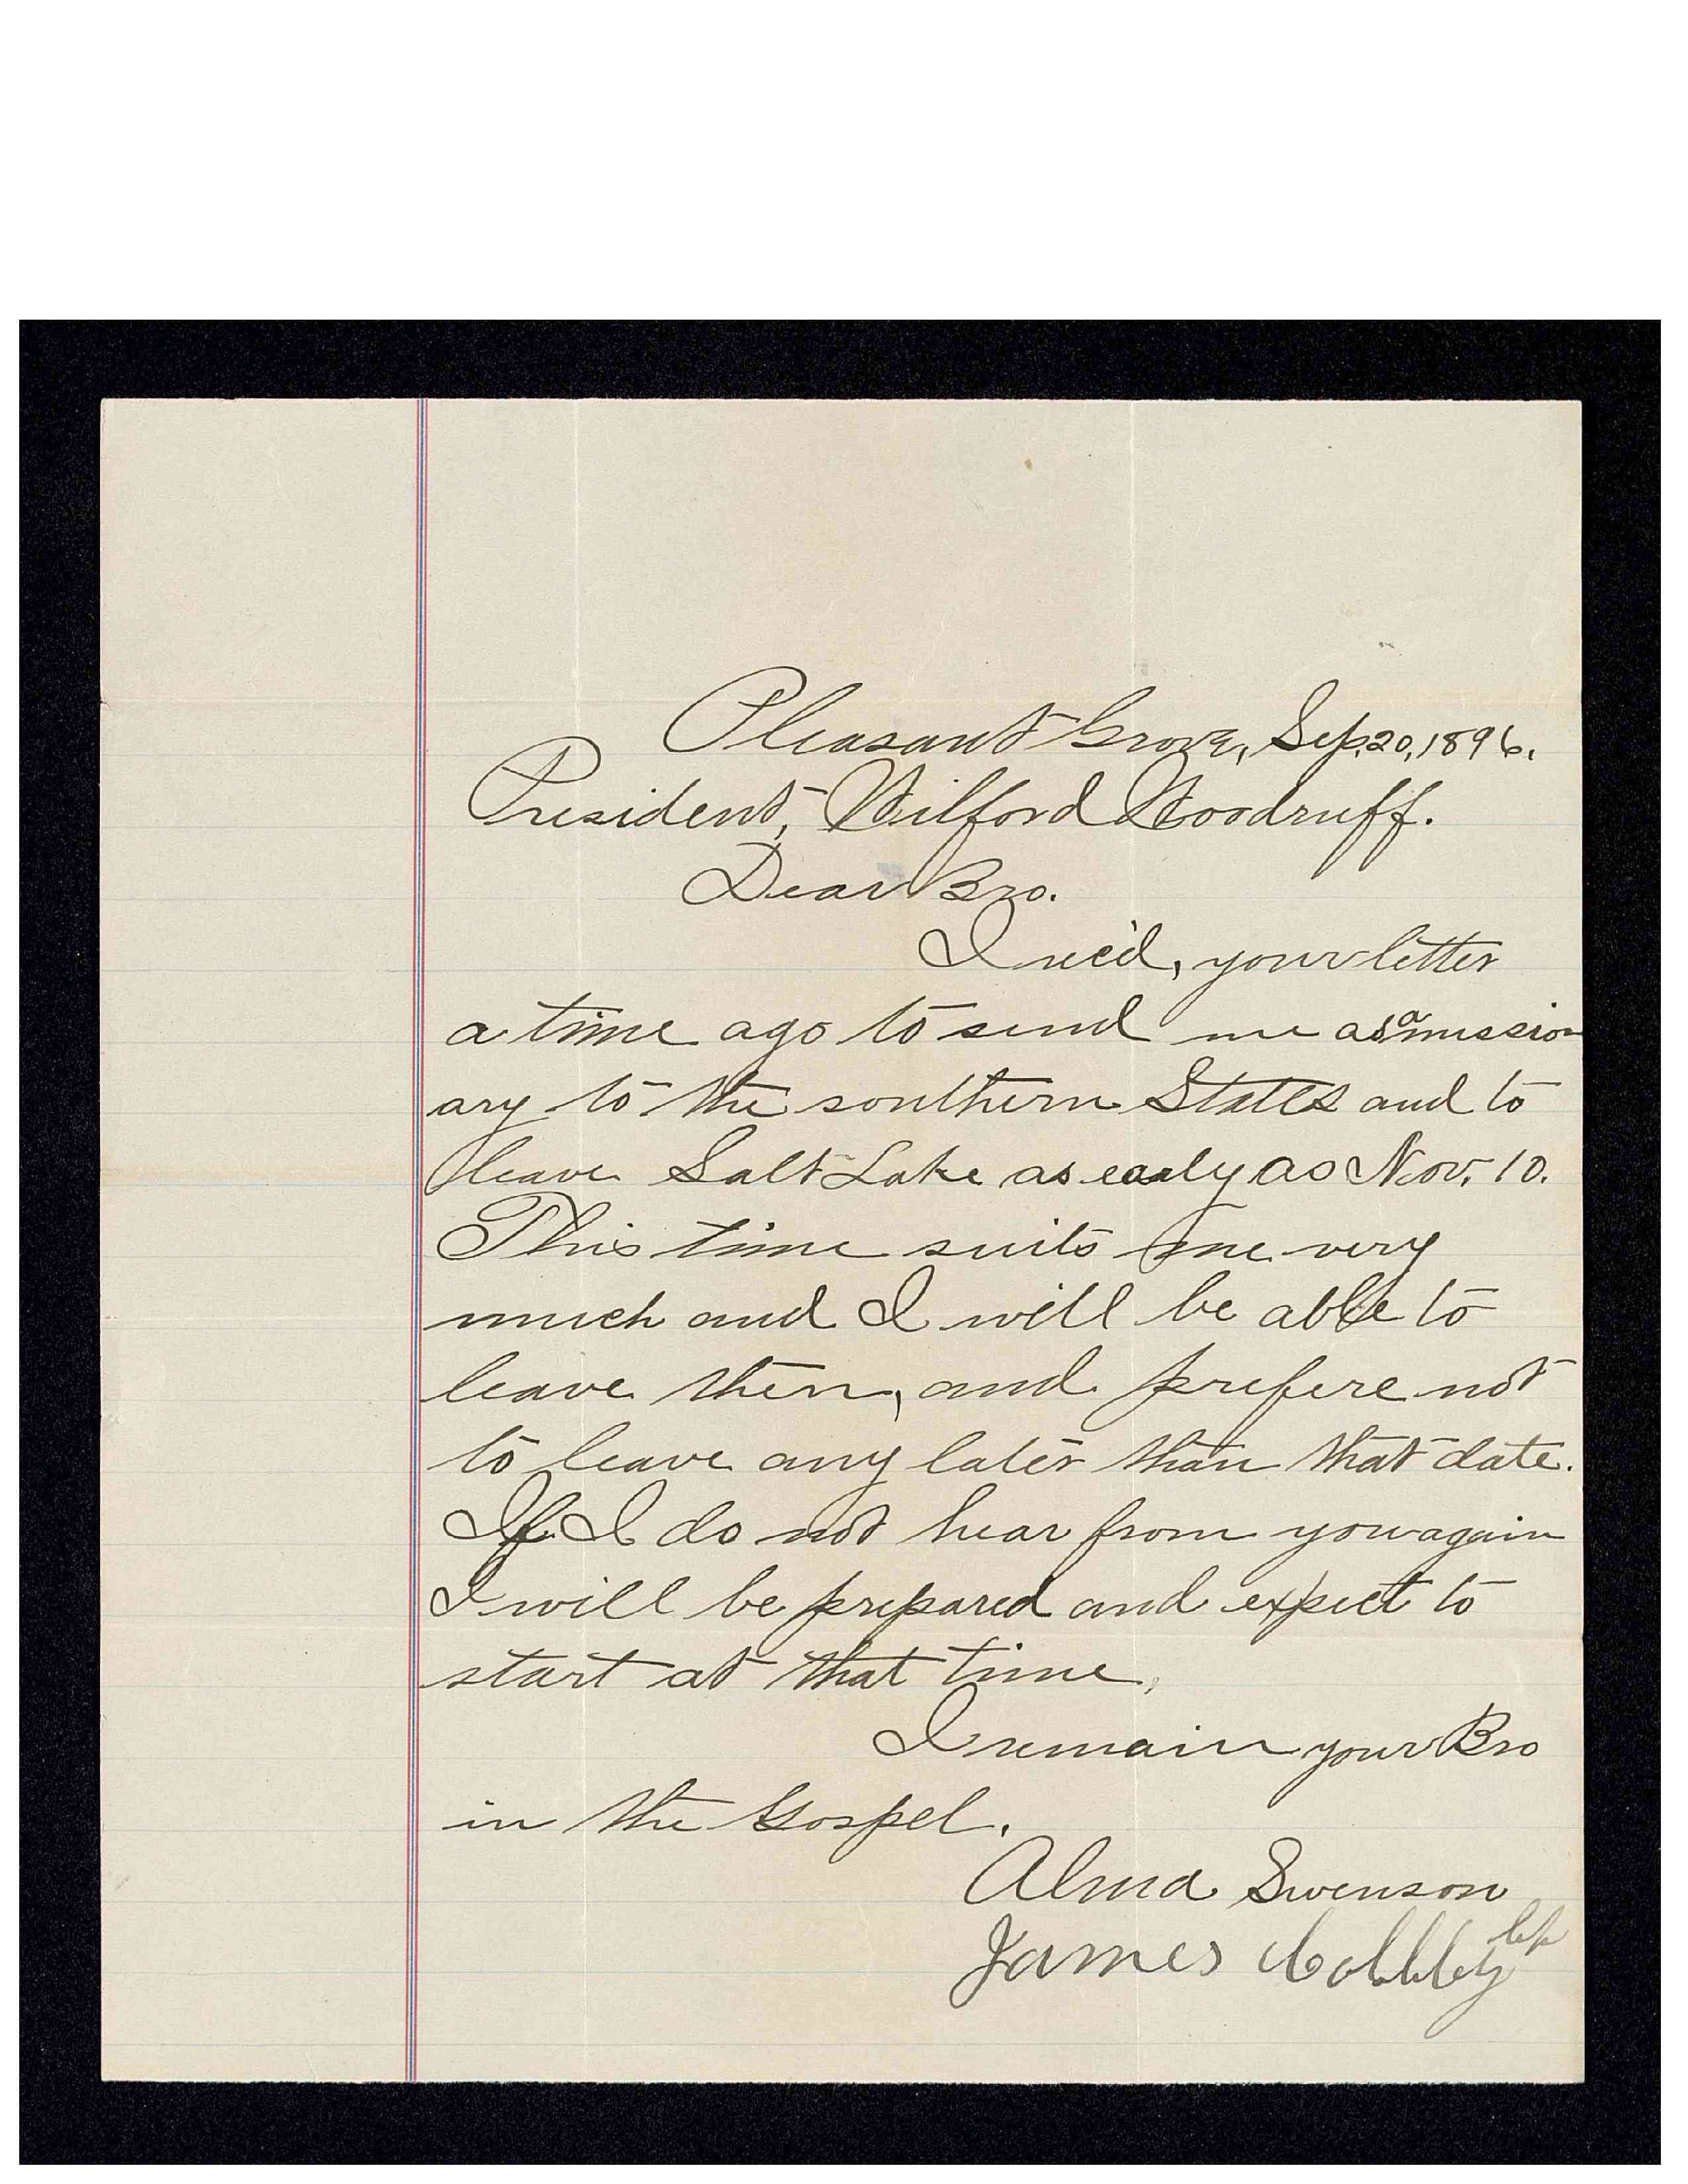 Pleasant Grove, Sep. 20, 1896.
President, Wilford Woodruff.
Dear Bro.
I rec'd, your letter
a time ago to send me as a mission
ary to the southern States and to
leave Salt Lake as early as Nov. 10.
This time suits me very
much and I will be able to
leave then, and prefere not
to leave any later than that date.
If I do not hear from you again
I will be prepared and expect to
start at that time,
I remain your Bro
in the Gospel.
Alma Swenson
James